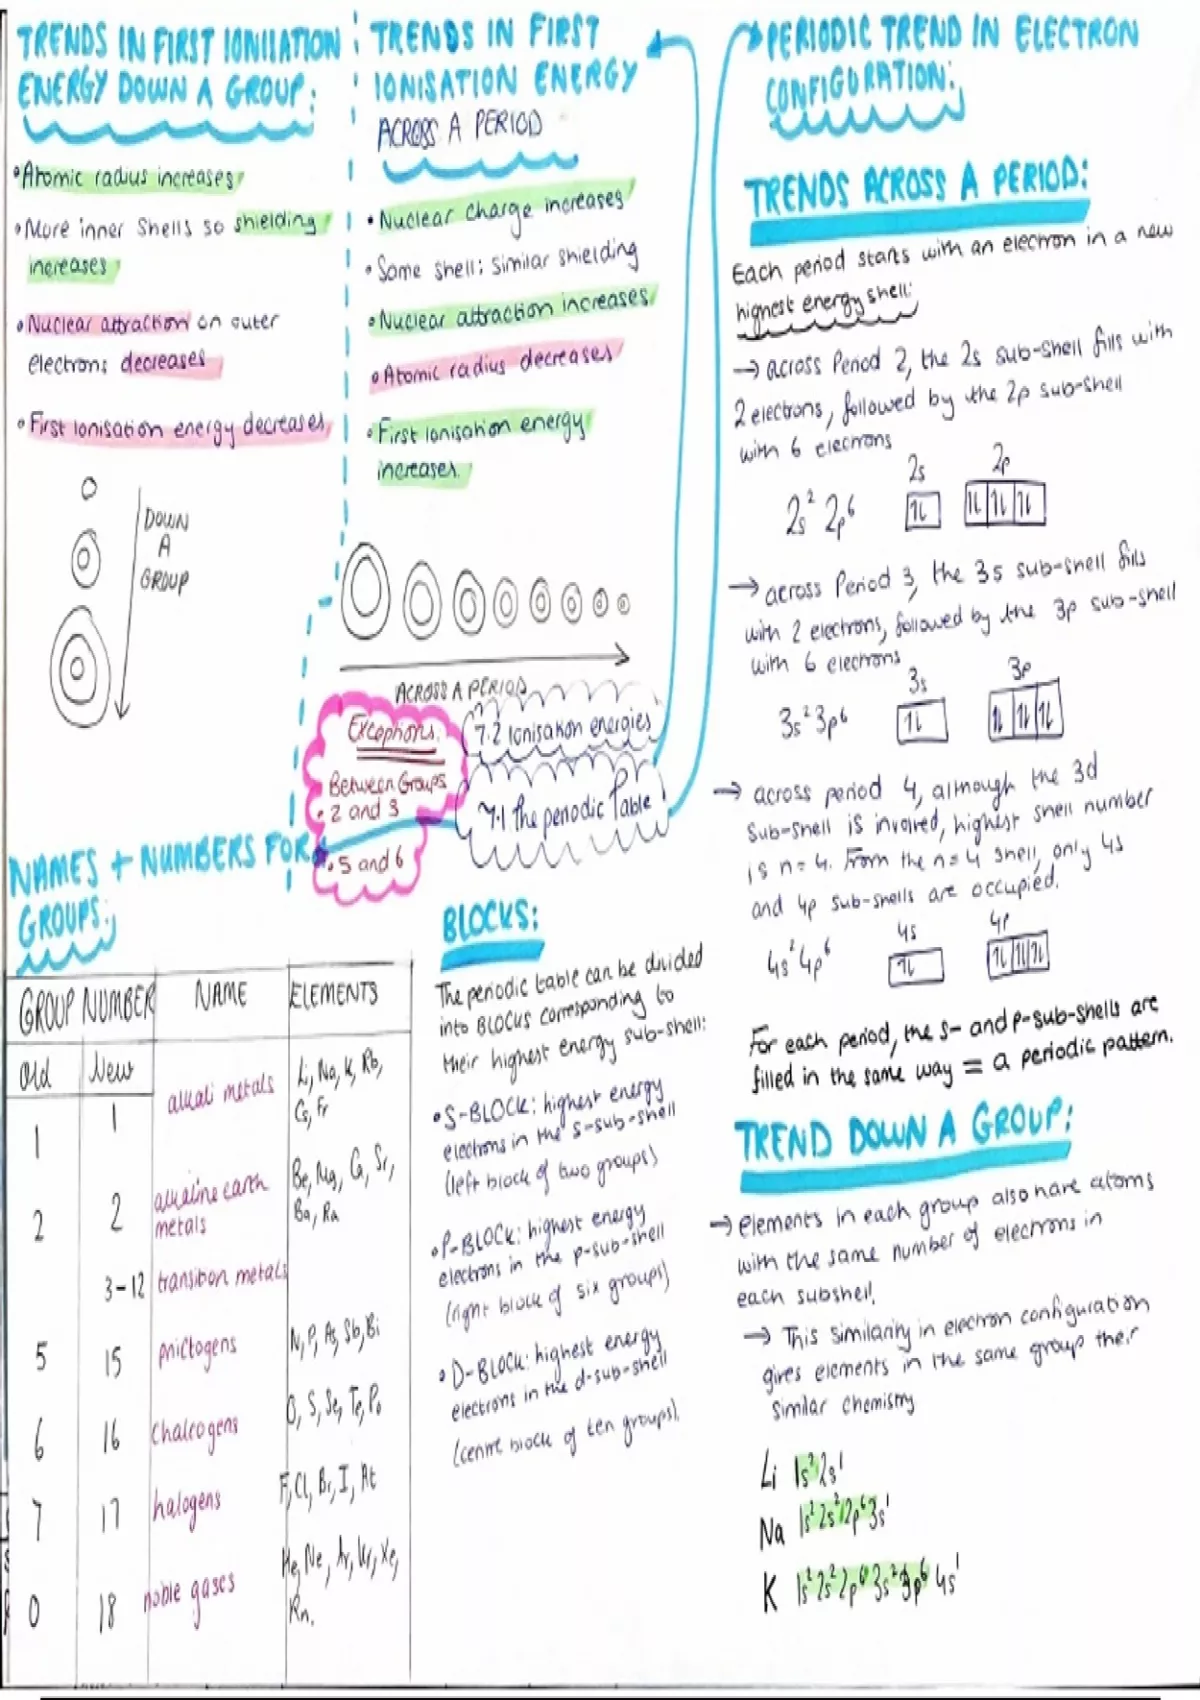 TRENDS IN FIRST IONISATION
ENERGY DOWN A GROUP:
• Atomic radius increases
• More inner Shells so shielding
increases
• Nuclear attraction on outer
electrons decreases
• First ionisation energy decreases
DOWN
A
GROUP
TRENDS IN FIRST
IONISATION ENERGY
ACROSS A PERIOD
• Nuclear charge increases
• Same shell: similar shielding
• Nuclear attraction increases
• Atomic radius decreases
• First ionisation energy
increases.
ACROSS A PERIOD
Exceptions:
Between Groups
• 2 and 3
• 5 and 6
7.2 Ionisation energies
7.1 The periodic Table
NAMES + NUMBERS FOR
GROUPS:
GROUP NUMBER NAME ELEMENTS
Old New
1 1 alkali metals Li, Na, K, Rb,
Cs, Fr
2 2 alkaline earth
metals Be, Mg, Ca, Sr,
Ba, Ra
3-12 transition metals
5 15 pnictogens N, P, As, Sb, Bi
6 16 Chalcogens O, S, Se, Te, Po
7 17 halogens F, Cl, Br, I, At
0 18 noble gases He, Ne, Ar, Kr, Xe,
Rn.
BLOCKS:
The periodic table can be divided
into BLOCKS corresponding to
their highest energy sub-shell:
• S-BLOCK: highest energy
electrons in the s-sub-shell
(left block of two groups)
• P-BLOCK: highest energy
electrons in the p-sub-shell
(right block of six groups)
• D-BLOCK: highest energy
electrons in the d-sub-shell
(centre block of ten groups).
PERIODIC TREND IN ELECTRON
CONFIGURATION:
TRENDS ACROSS A PERIOD:
Each period starts with an electron in a new
highest energy shell:
→ across Period 2, the 2s sub-shell fills with
2 electrons, followed by the 2p sub-shell
with 6 electrons
2s 2p
2s² 2p⁶ 1L 1L 1L 1L
→ across Period 3, the 3s sub-shell fills
with 2 electrons, followed by the 3p sub-shell
with 6 electrons
3s 3p
3s² 3p⁶ 1L 1L 1L 1L
→ across period 4, although the 3d
sub-shell is involved, highest shell number
is n=4. From the n=4 shell, only 4s
and 4p sub-shells are occupied.
4s 4p
4s² 4p⁶ 1L 1L 1L 1L
For each period, the s- and p-sub-shells are
filled in the same way = a periodic pattern.
TREND DOWN A GROUP:
→ elements in each group also have atoms
with the same number of electrons in
each subshell.
→ This similarity in electron configuration
gives elements in the same group their
similar chemistry
Li 1s²2s¹
Na 1s²2s²2p⁶3s¹
K 1s²2s²2p⁶3s²3p⁶4s¹